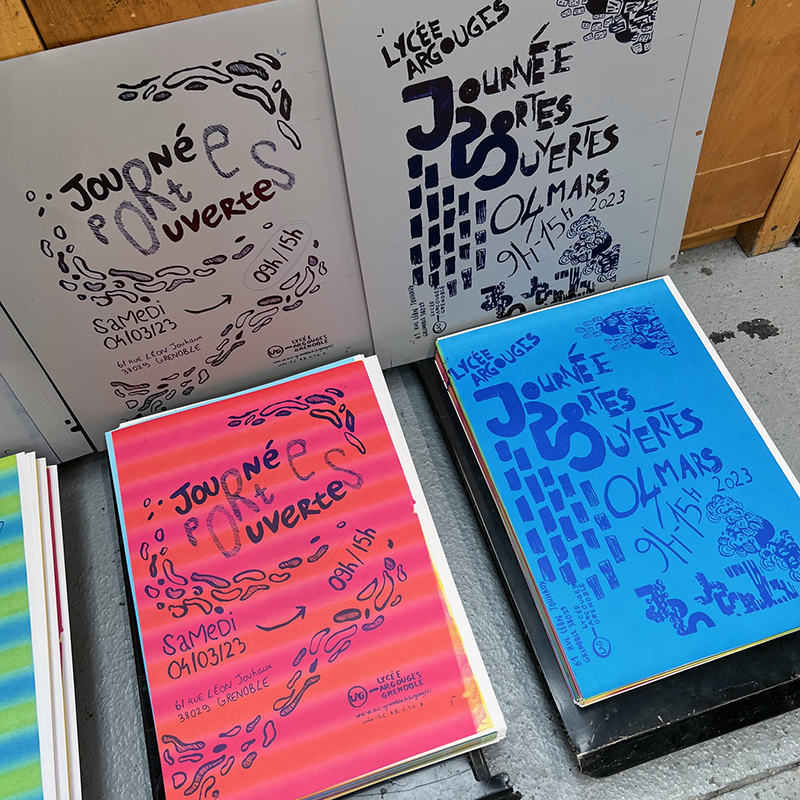 JOURNÉE
PORtes
OUVERTES
09h/15h
SAMEDI
04/03/23
61 RUE LÉON Jouhaux
38029 GRENOBLE
LYCÉE
ARGOUGES
GRENOBLE
LYCÉE
ARGOUGES
JOURNÉE
PORTES
OUVERTES
04 MARS
9H-15H 2023
LYCÉE
ARGOUGES
GRENOBLE
JOURNÉE
PORtes
OUVERTES
09h/15h
SAMEDI
04/03/23
61 RUE LÉON Jouhaux
38029 GRENOBLE
LYCÉE
ARGOUGES
GRENOBLE
LYCÉE
ARGOUGES
JOURNÉE
PORTES
OUVERTES
04 MARS
9H-15H 2023
61 RUE LÉON JOUHAUX
GRENOBLE 38029
LYCÉE
ARGOUGES
GRENOBLE